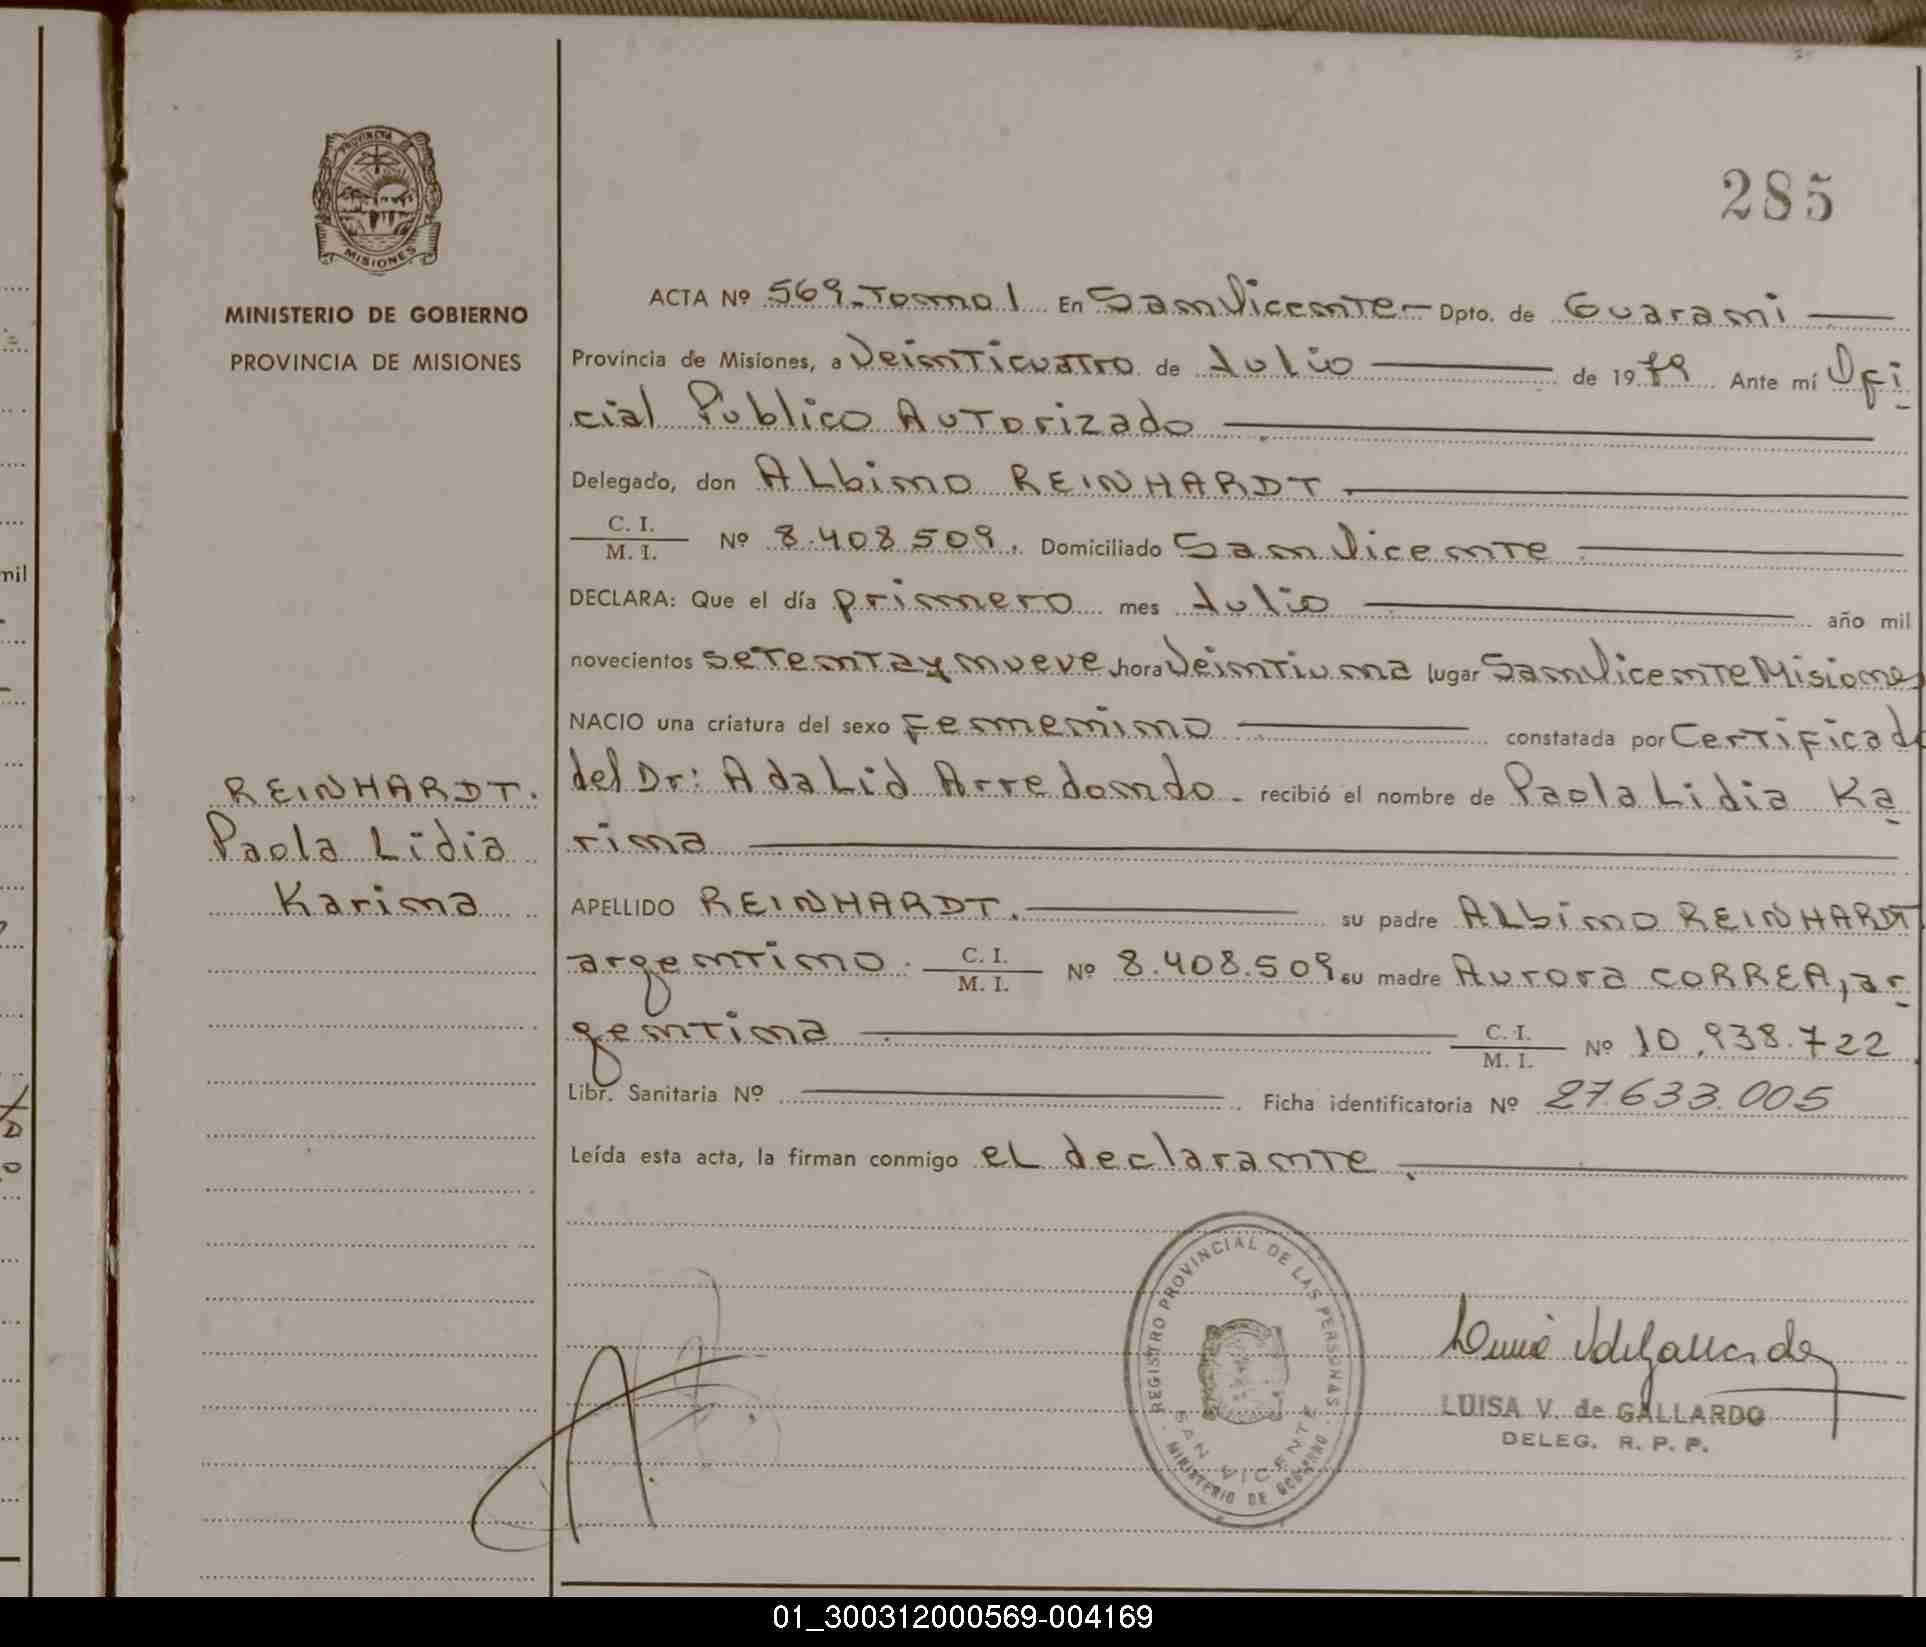 PROVINCIA
MISIONES
MINISTERIO DE GOBIERNO
PROVINCIA DE MISIONES
285
ACTA Nº 569. Tomo 1 En San Vicente - Dpto. de Guarani
Provincia de Misiones, a Veinticuatro de Julio de 1979 Ante mí Ofi
cial Publico Autorizado
Delegado, don ALbino REINHARDT
C. I.
M. I. Nº 8.408.509. Domiciliado San Vicente
DECLARA: Que el día primero mes Julio año mil
novecientos setenta y nueve hora Veintiuna lugar San Vicente Misiones
NACIO una criatura del sexo Femenino constatada por Certificado
del Dr: AdaLid Arredondo - recibió el nombre de Paola Lidia Ka
rina
REINHARDT.
Paola Lidia
Karina
APELLIDO REINHARDT. su padre ALbino REINHARDT
argentino. C. I.
M. I. Nº 8.408.509 su madre Aurora CORREA, ar
gentina C. I.
M. I. Nº 10.938.722
Libr. Sanitaria Nº Ficha identificatoria Nº 27.633.005
Leída esta acta, la firman conmigo eL declarante.
REGISTRO PROVINCIAL DE LAS PERSONAS
SAN VICENTE
MINISTERIO DE GOBIERNO
LUISA V. de GALLARDO
DELEG. R. P. P.
mil
01_300312000569-004169